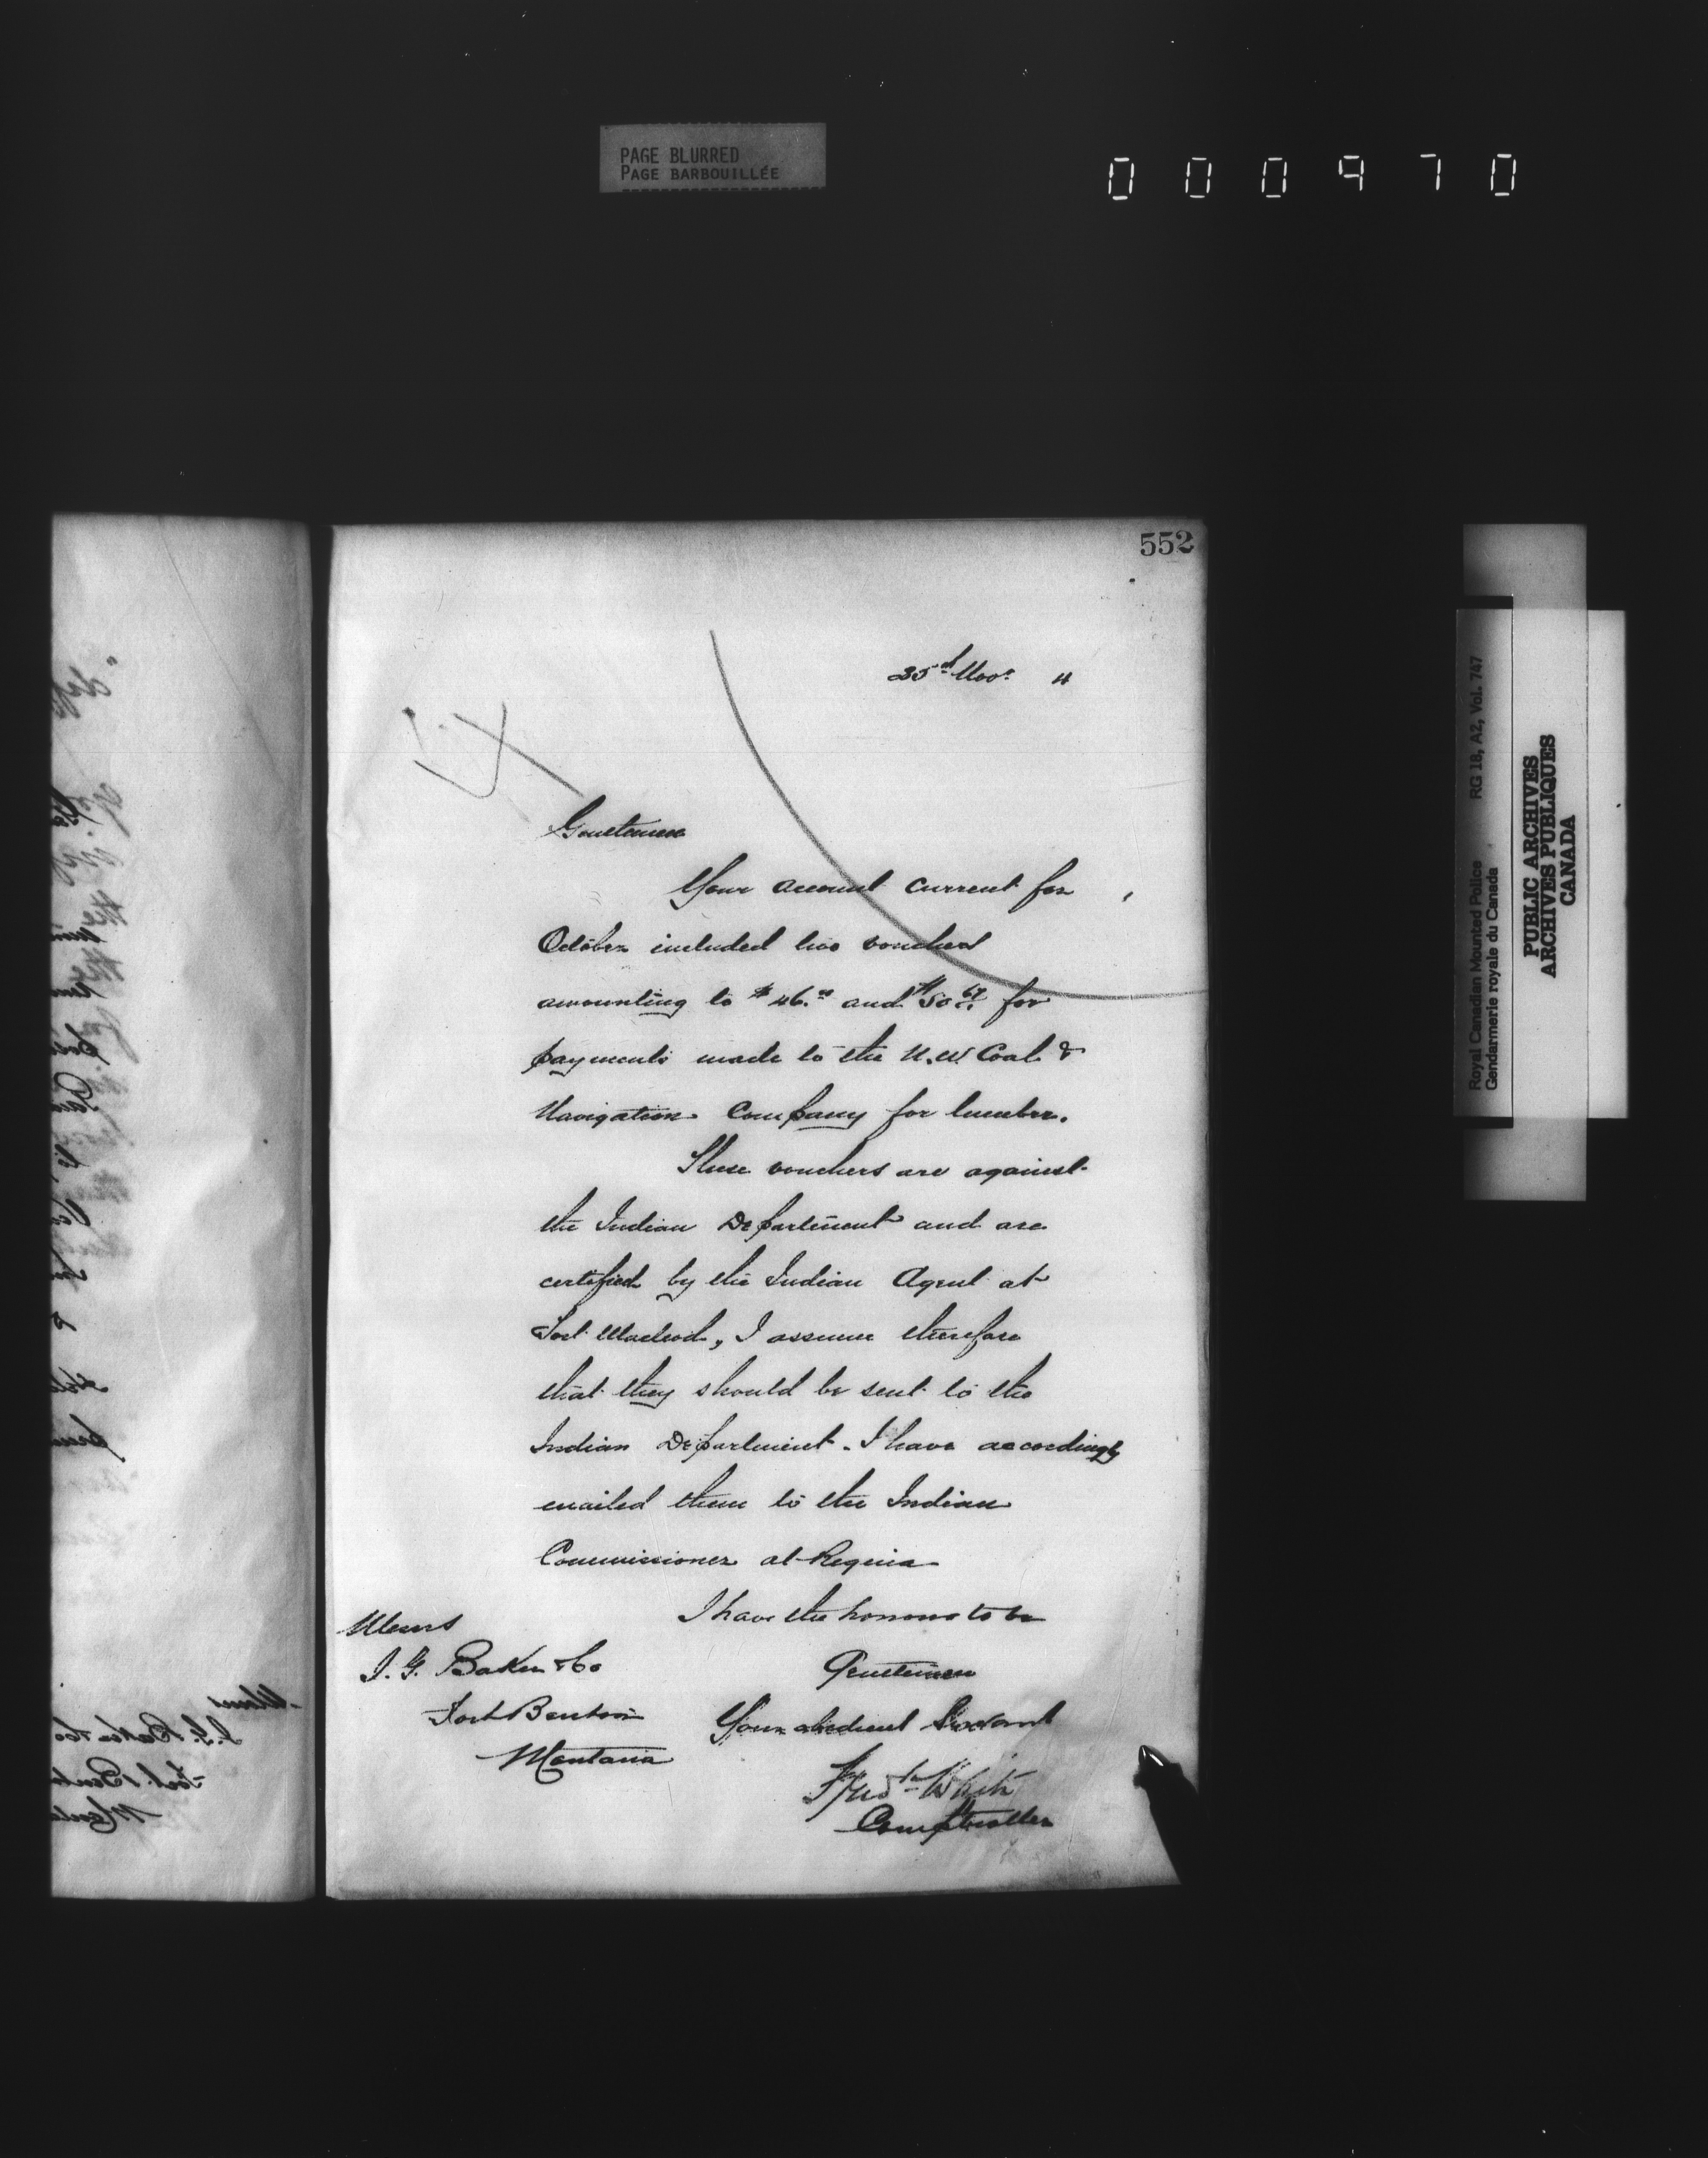 PAGE BLURRED
PAGE BARBOUILLÉE
000970
552
25th Novr. 4
Gentlemen
Your account current for
October included two vouchers
amounting to $46.00 and $50.67 for
payments made to the N.W. Coal &
Navigation Company for lumber.
These vouchers are against
the Indian Department and are
certified by the Indian Agent at
Fort Macleod, I assume therefore
that they should be sent to the
Indian Department. I have accordingly
mailed them to the Indian
Commissioner at Regina
I have the honour to be
Gentlemen
Your obedient Servant
Fred White
Comptroller
Messrs
I. G. Baker & Co
Fort Benton
Montana
Royal Canadian Mounted Police RG 18, A2, Vol. 747
Gendarmerie royale du Canada
PUBLIC ARCHIVES
ARCHIVES PUBLIQUES
CANADA